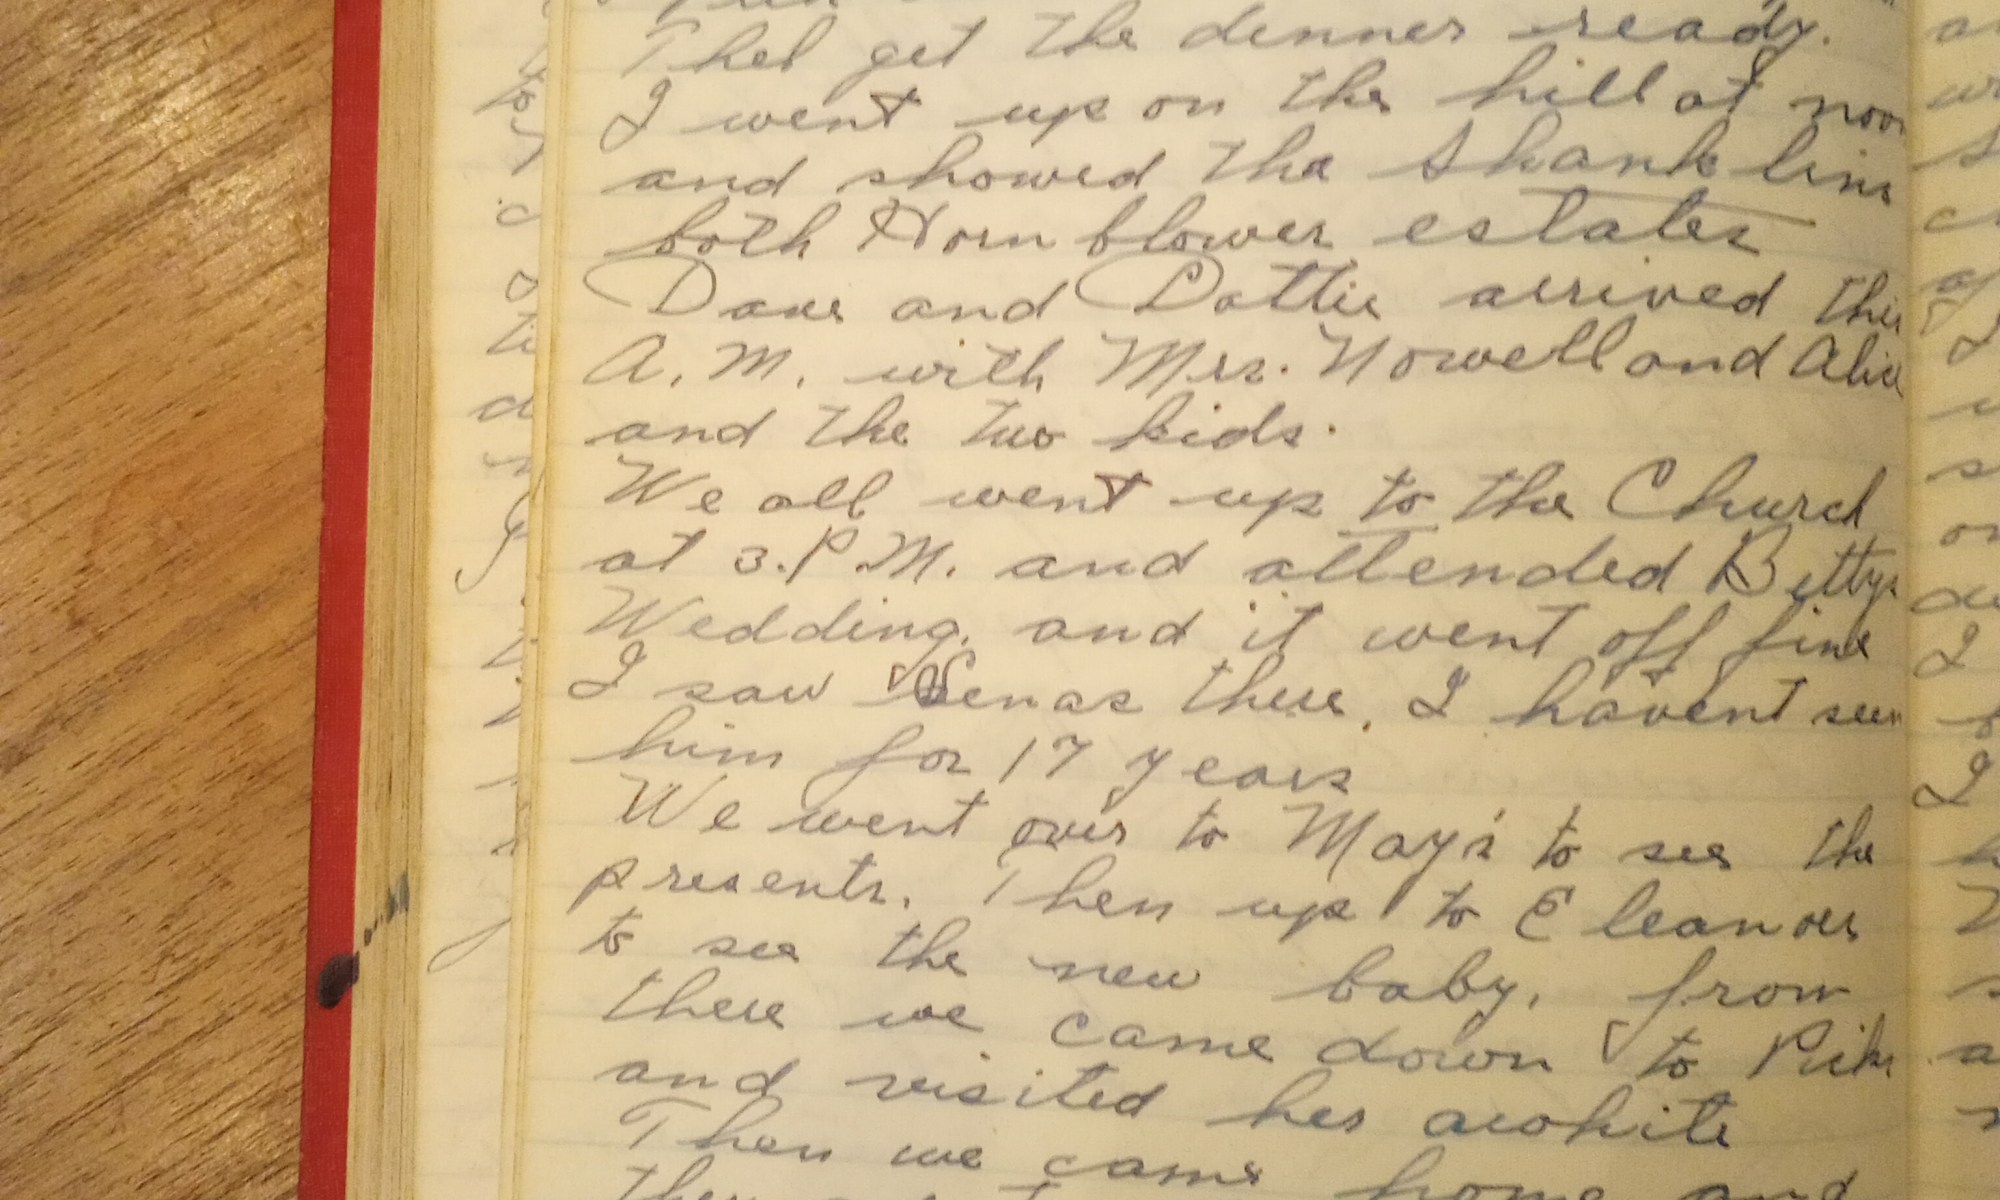 Thel get the denner ready.
I went up on the hill at noon
and showed the Shanklins
both Horn blower estates
Dave and Dottie arrived this
A.M. with Mrs. Nowell and Alice
and the two kids.
We all went up to the Church
at 3.P.M. and attended Bettys
Wedding. and it went off fine
I saw Senas there. I havent seen
him for 17 years
We went over to May's to see the
presents. Then up to Eleanors
to see the new baby, from
there we came down to Piks
and visited her awhite
Then we came home and